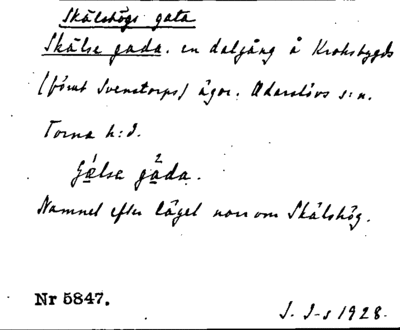 Skälshögs gata
Skälse gada. en dalgång å Kroksbygds
(förut Svenstorps) ägor. Odarslövs s:n.
Torna h:d.
Gælse gada.
Namnet efter läget norr om Skälshög.
Nr 5847.
J. J-s 1928.